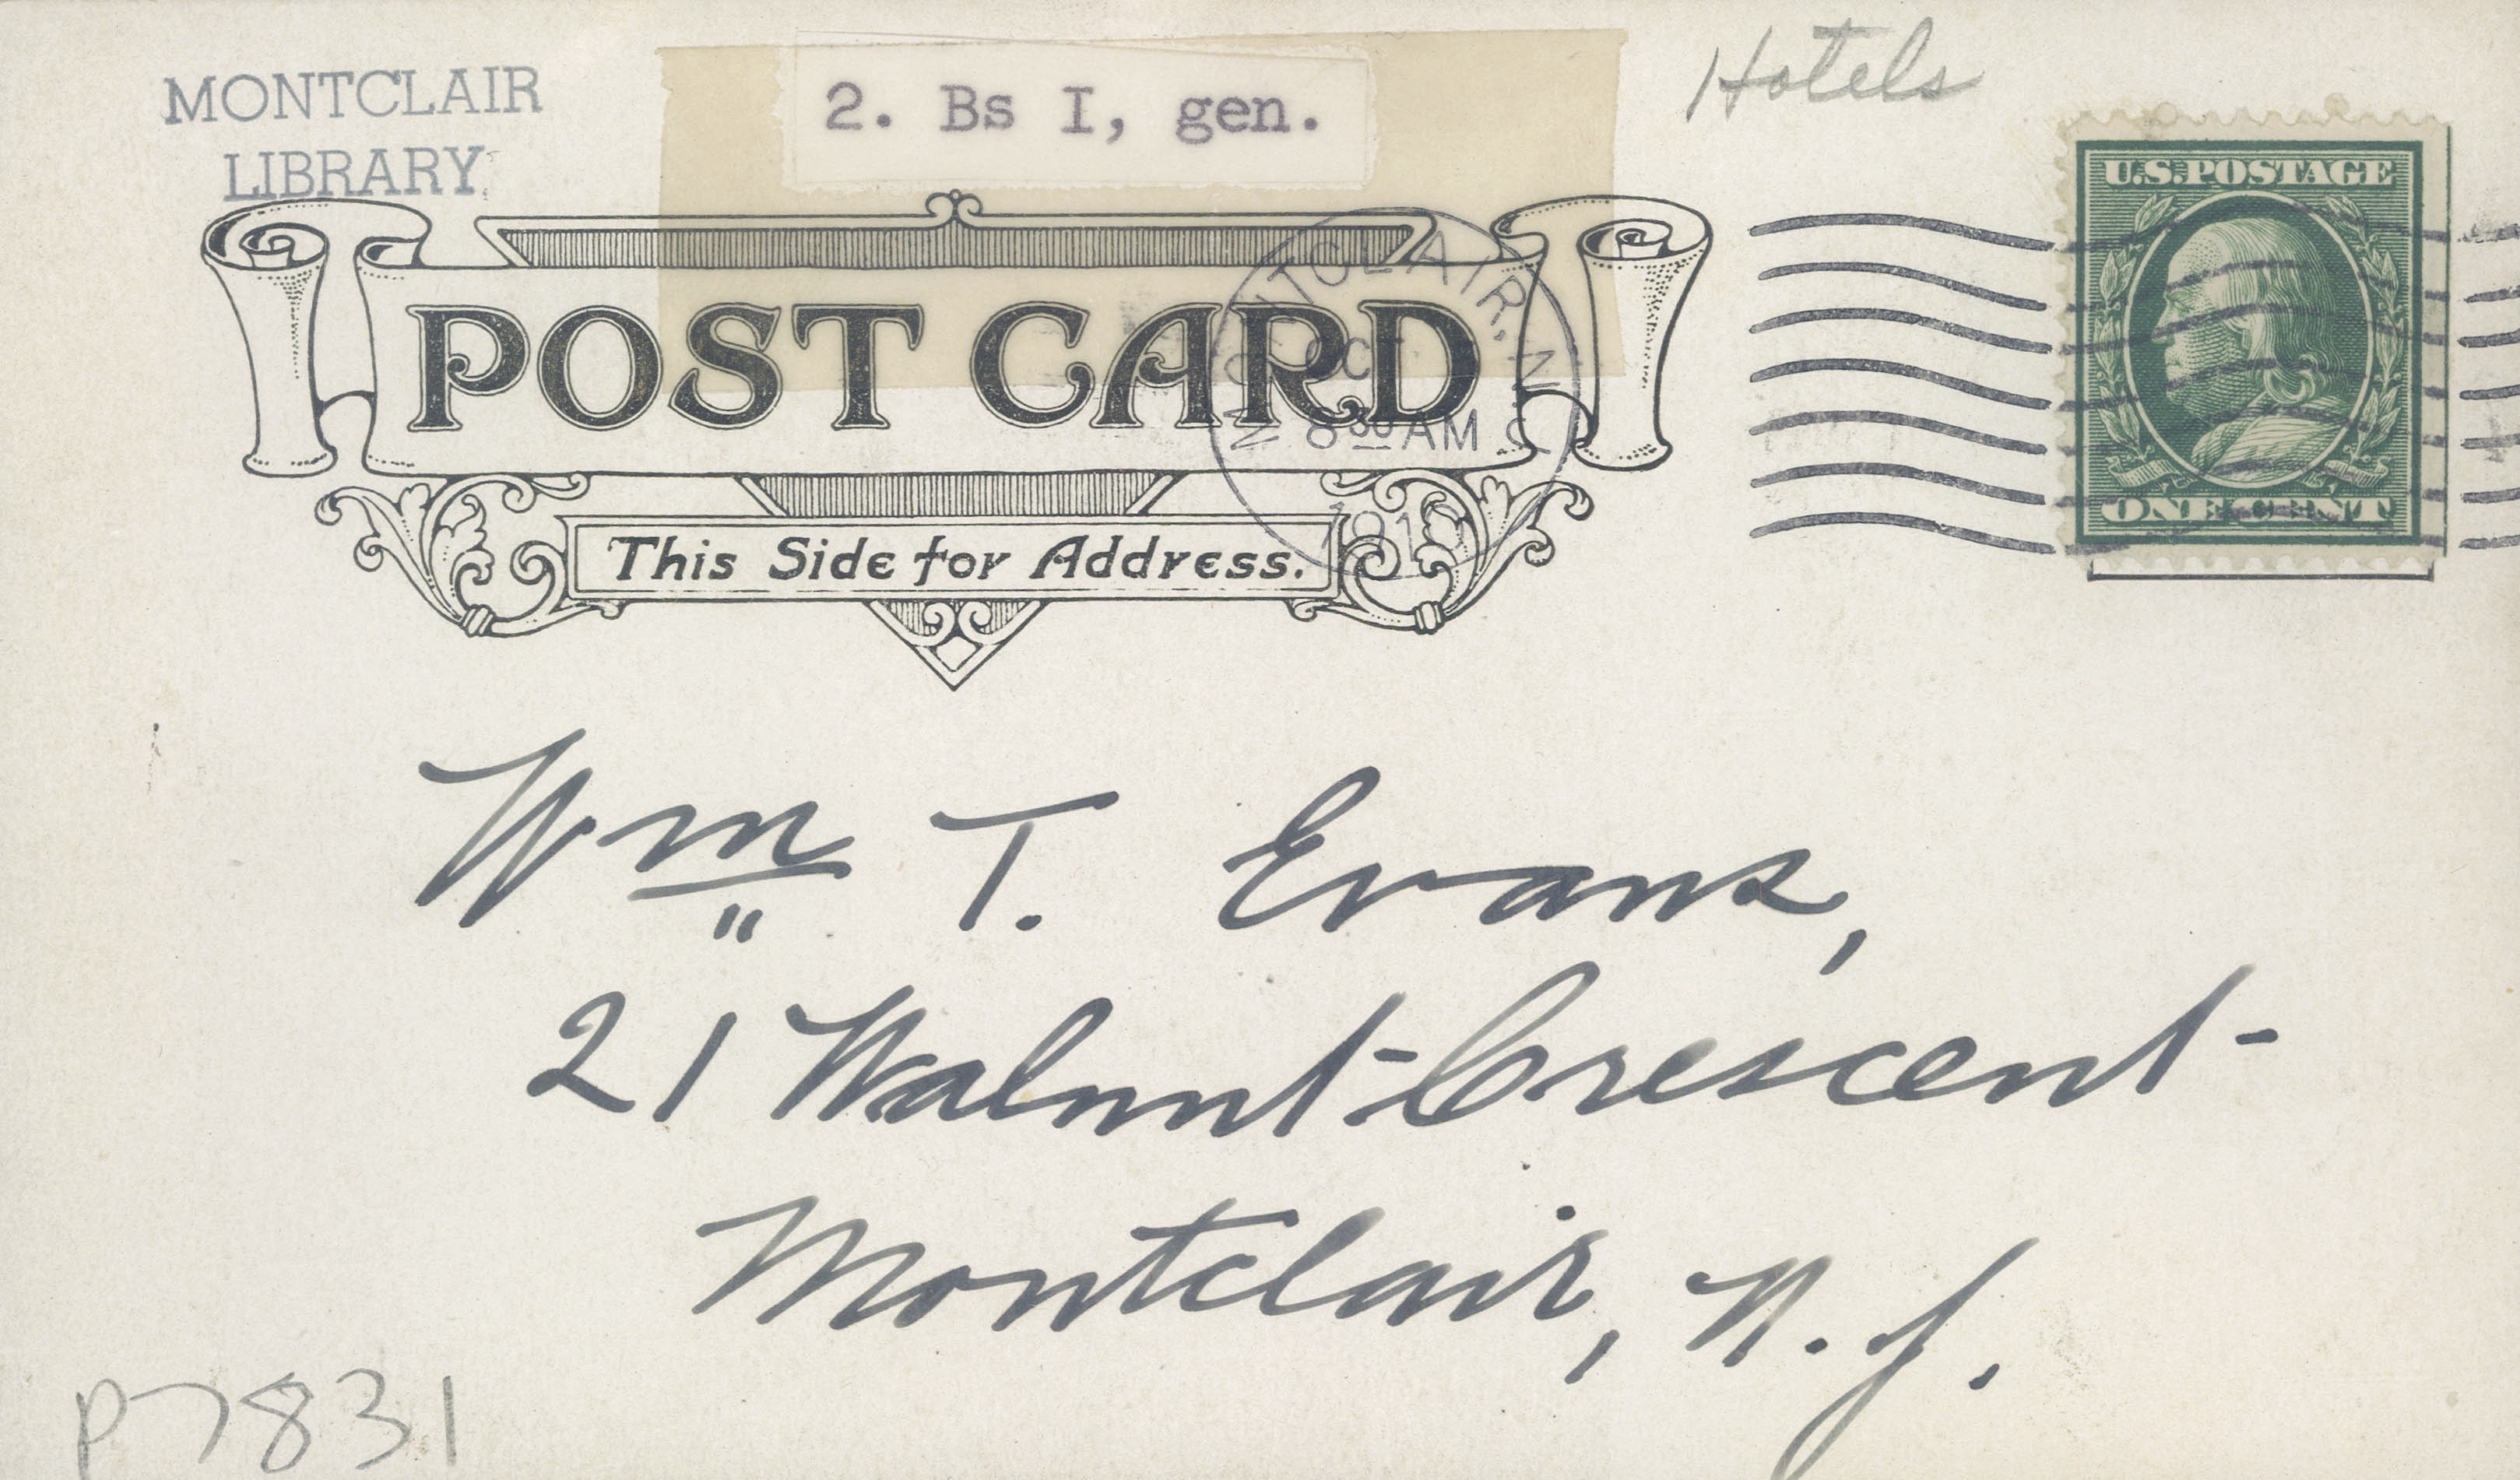 MONTCLAIR
LIBRARY
2. Bs I, gen.
Hotels
U.S. POSTAGE
ONE CENT
POST CARD
MONTCLAIR, N.J.
OCT
8 30 AM
This Side for Address.
Wm T. Evans,
21 Walnut Crescent
Montclair, N.J.
P7831